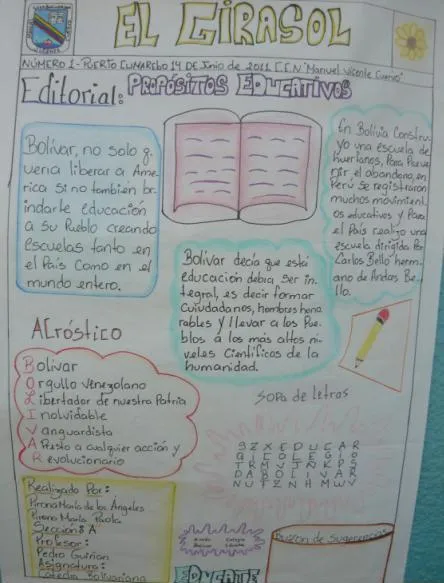 EL GIRASOL
NÚMERO 1 - PUERTO CUMAREBO 14 DE Junio de 2011 C.C.N "Manuel Vicente Cuervo"
Editorial: PROPÓSITOS EDUCATIVOS
Bolívar, no solo q
ueria liberar a Ame
rica si no tambien br
indarle educación
a su Pueblo creando
escuelas tanto en
el País Como en el
mundo entero.
En Bolivia Constru
yo una escuela de
huerfanos, Para Preve
nir el abandono, en
Perú se registraron
muchos movimient
os educativos y Para
el País realizo una
escuela dirigida Por
Carlos Bello herm-
ano de Andres Be-
llo.
Bolívar decía que esta
educación debia ser in-
tegral, es decir formar
Cuiudadanos, hombres hono
rables y llevar a los Pue-
blos a los más altos ni-
veles Cientificos de la
humanidad.
ACróstico
Bolivar
Orgullo Venezolano
Libertador de nuestra Patria
Inolvidable
Vanguardista
A Presto a cualquier acción y
Revolucionario
SOPA de letras
S Z X E D U C A R
Q I C O L E G I O
T R M V J Ñ K P S
D A B O L I V A R
N U T Z N H M W V
Realizado Por:
Pirona María de los Ángeles
Pirona María Paola
Sección: A
Profesor:
Pedro Guiñan
Asignatura:
Catedra Bolivariana
Bolívar
Colegio
EDUCATE
Buzon de Sugerencias